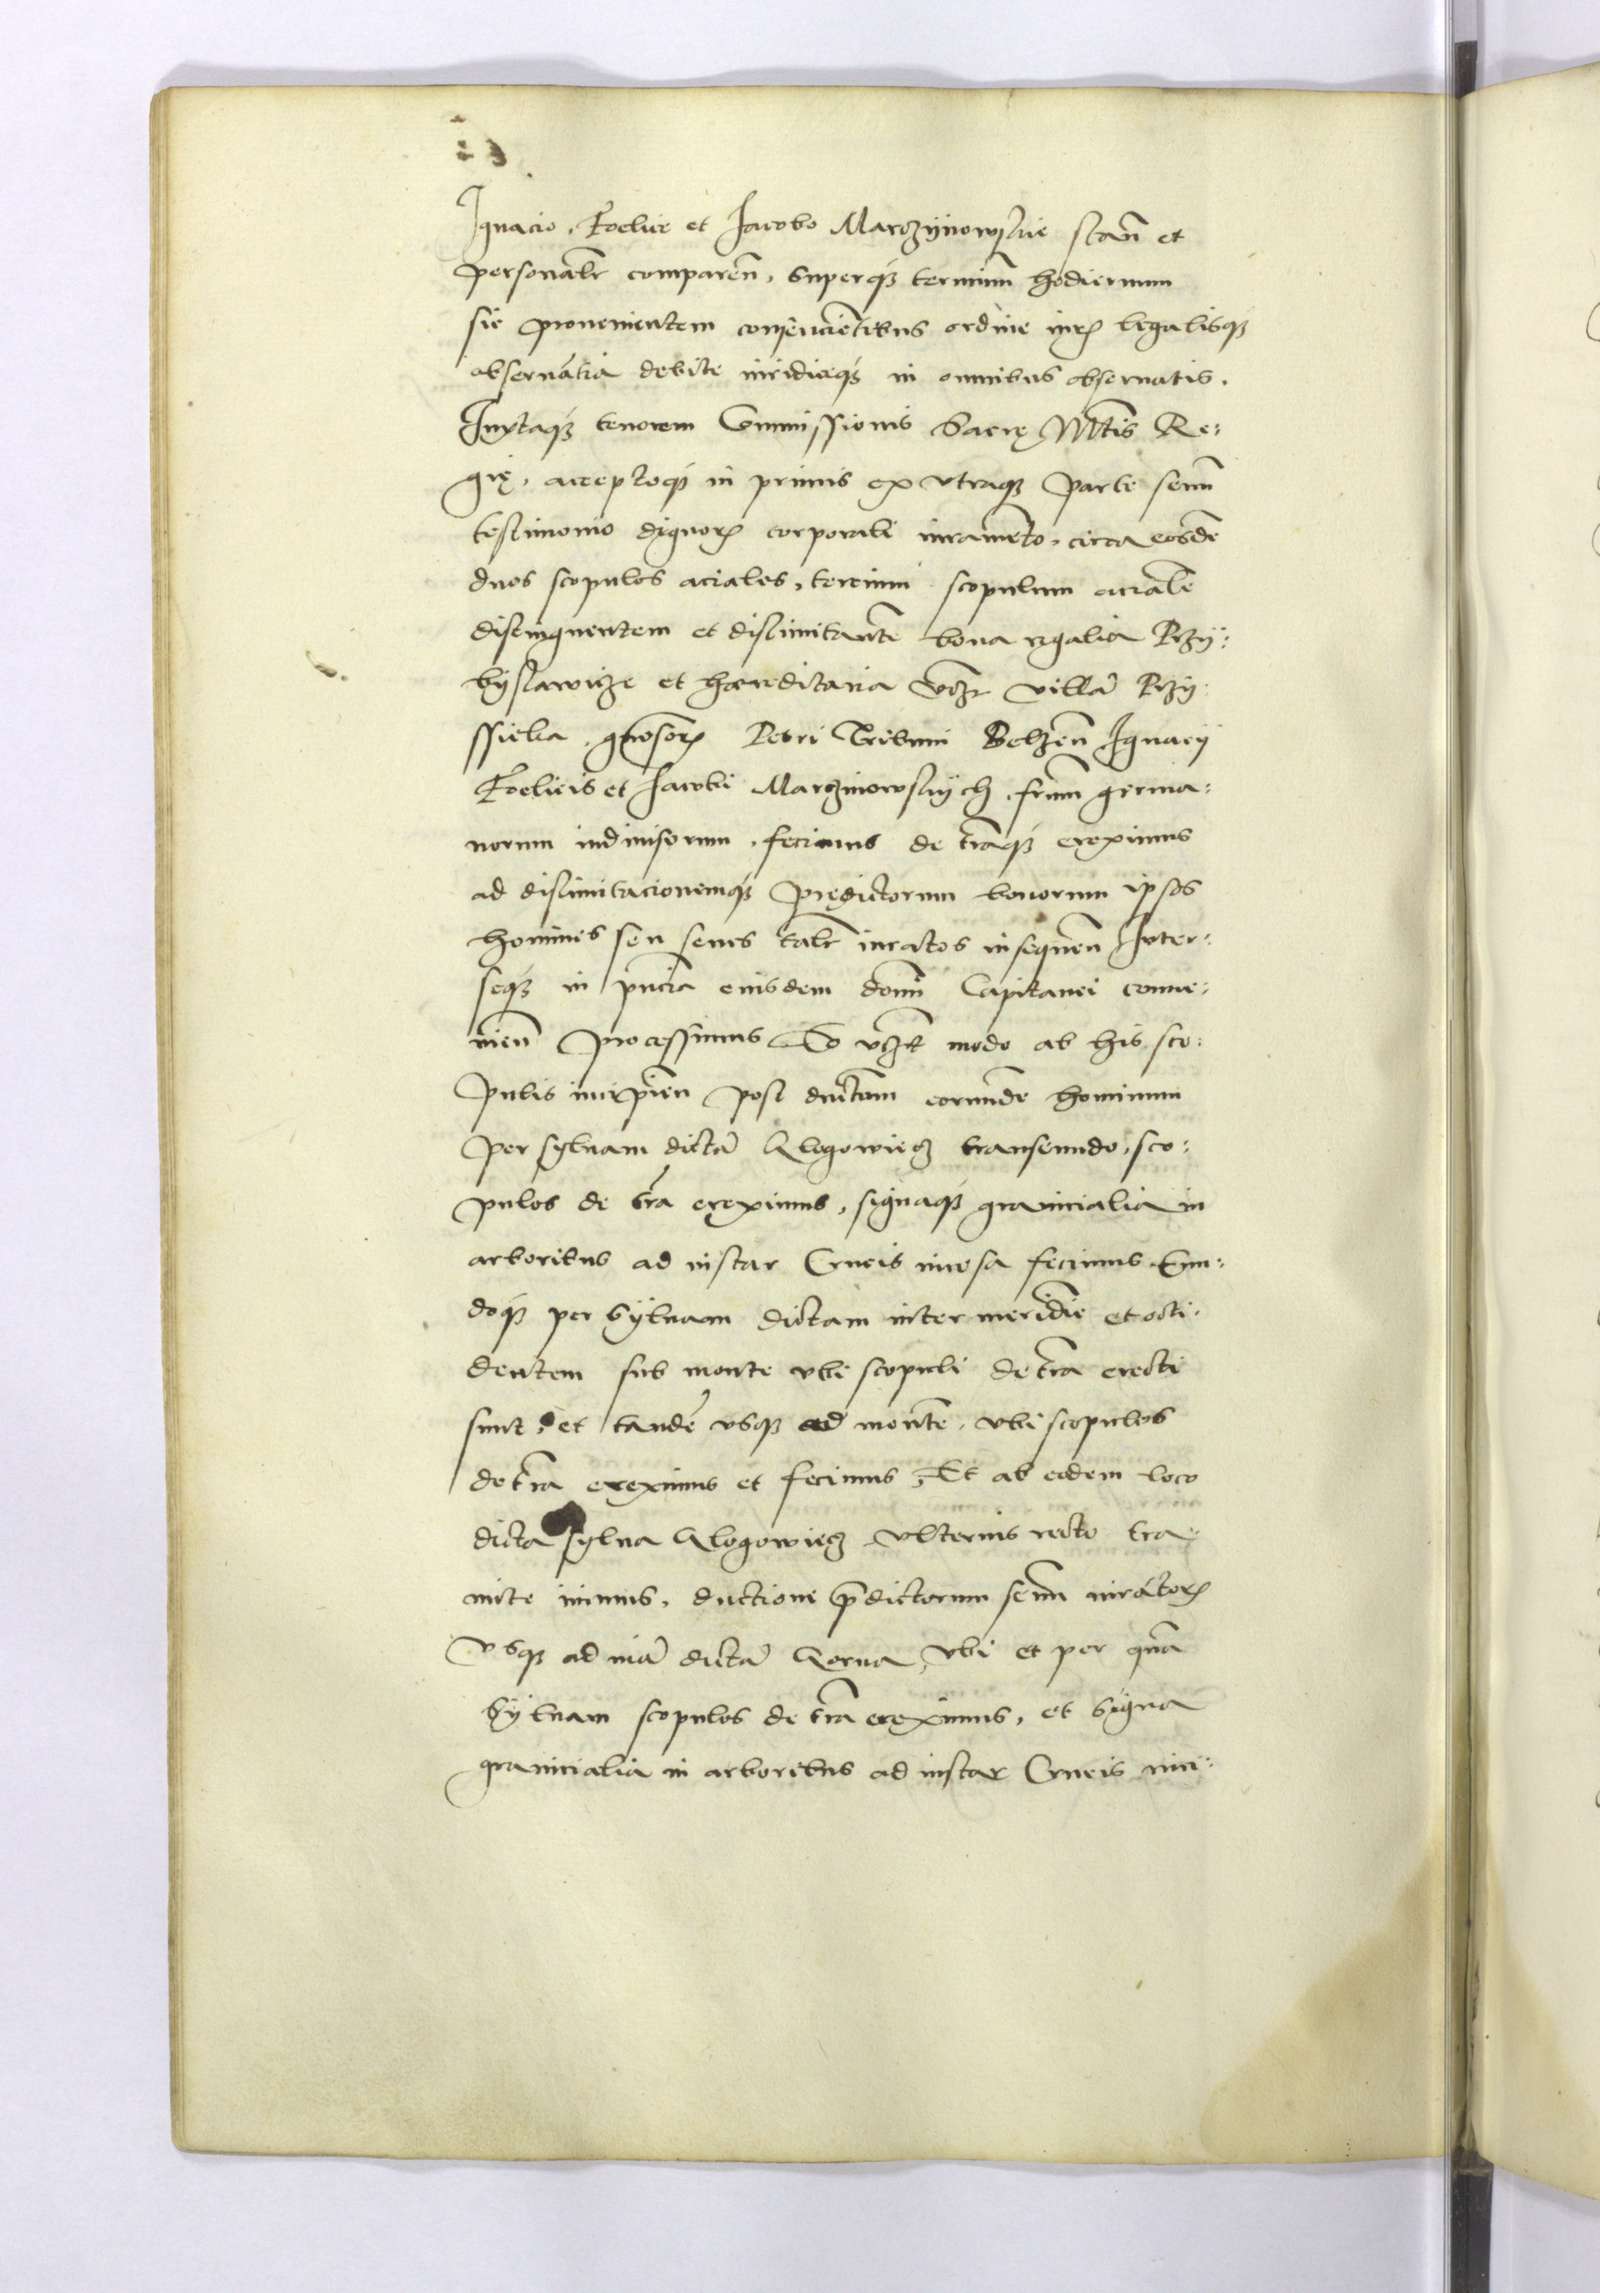 Ignacio, Foelice et Jacobo Marczÿnowskie stan̄ et
personalr̄ comparen̄, Superq́ȝ terminū hodiernum
sic prouenientem consencientibus ordine iurꝭ legalisq́ȝ
obseruátia debite iuridiceq́ȝ in omnibus obseruatis.
Juxtaq́ȝ tenorem Commissionis Sacrę Mtis̄ Re:
gię, acceptoq́ȝ in primis ex vtraqȝ parte senū
testimonio dignorꝭ corporali iuramēto, circa eosdē
duos scopulos aciales, tercium scopulum acialē
distinguentem et dislimitantē bona regalia Przÿ:
bÿslawicze et haereditaria vz̄ villā Przÿ:
ssieka, gn̄osorꝭ Petri Tribuni Belzen̄ Ignacÿ
Foelicis et Jacobi Marczinowskÿch, frūm germa:
norum indiuisorum, fecimus de trāq́ȝ ereximus
ad dislimitacionemq́ȝ pręedictorum bonorum ipsos
homines seu senes talr̄ iuratos insequen̄ Inter:
seq́ȝ in pn̄cia eiusdem domī Capitanei conue:
nien̄ processimus Eo vz̄t modo ab his sco:
pulis incipien̄ post ductum eorundē hominum
per sylvam dictā Klogowiecz transeundo, sco:
pulos de trā ereximus, signaq́ȝ granicialia in
arboribus ad instar Crucis incisa fecimus Eun:
doq́ȝ per Sÿluam dictam inter meridiē et occi:
dentem sub monte vbi scopuli de trā erecti
sunt, et tandē vsqȝ ad montē, vbi scopulos
de trā ereximus et fecimus, Et ab eodem loco
dicta sylua Klogowiecz vlterius recto tra:
mite iuimus, ductione p̄dictorum senū iuratorꝭ
vsqȝ ad viā dictā Korna, vbi et per quā
Sÿluam scopulos de trā ereximus, et Signa
granicialia in arboribus ad instar Crucis inci: